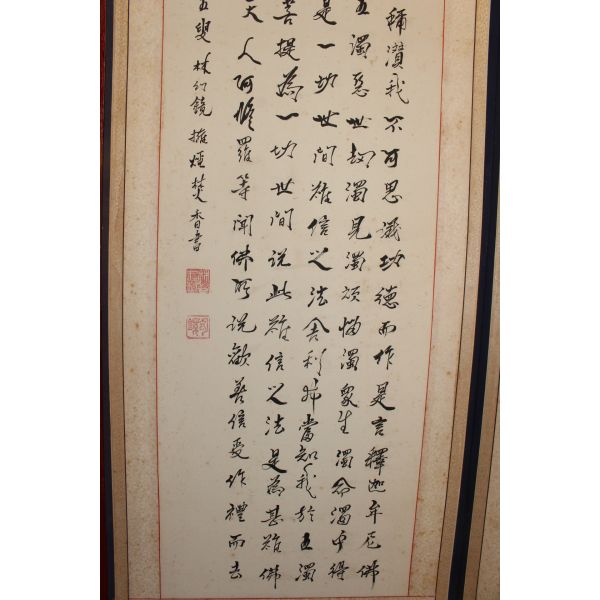 稱讚我不可思議功德而作是言釋迦牟尼佛
五濁惡世劫濁見濁煩惱濁眾生濁命濁中得
是一切世間難信之法舍利弗當知我於五濁
菩提為一切世間說此難信之法是為甚難佛
天人阿修羅等聞佛所說歡喜信受作禮而去
五叟林仁鏡擁煙焚香書